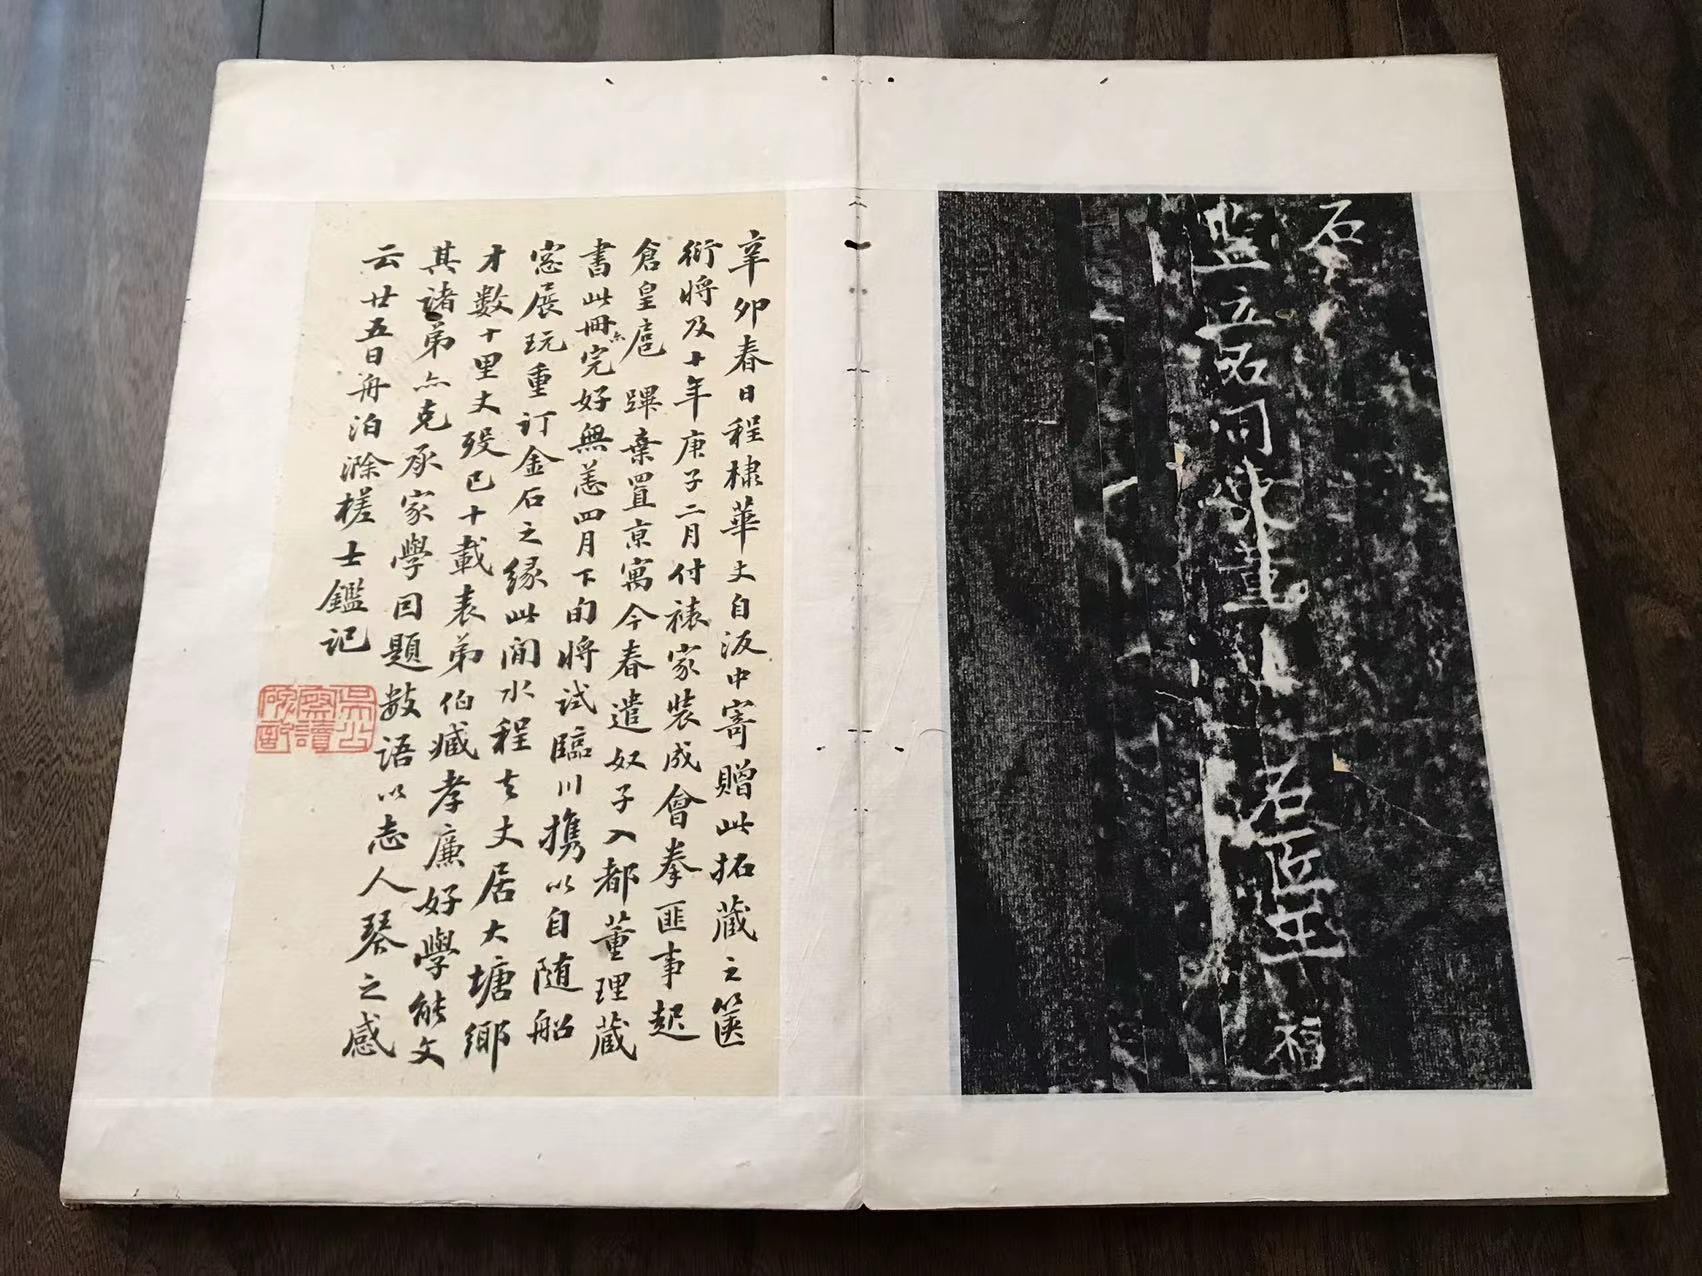 石
監立石同
石匠王 福
辛卯春日程棣華丈自汳中寄贈此拓藏之篋
衍將及十年庚子二月付裱家裝成會拳匪事起
倉皇扈蹕棄置京寓今春遣奴子入都董理藏
書此冊亦完好無恙四月下旬將試臨川攜以自随船
窓展玩重訂金石之緣此間水程去丈居大塘鄉
才數十里丈歿已十載表弟伯臧孝廉好學能文
其諸弟亦克承家學因題數語以志人琴之感
云廿五日舟泊滁槎士鑑記